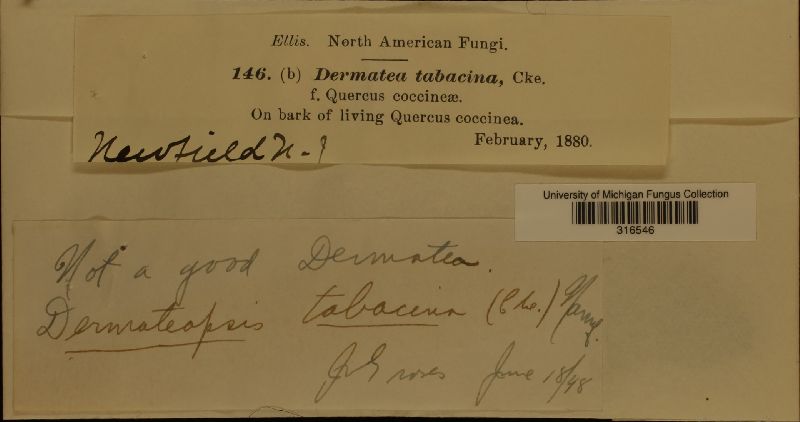 Ellis. North American Fungi.
146. (b) Dermatea tabacina, Cke.
f. Quercus coccineæ.
On bark of living Quercus coccinea.
February, 1880.
Newfield N.J
University of Michigan Fungus Collection
316546
Not a good Dermatea.
Dermateopsis tabacina (Cke.) Nannf.
June 18/98